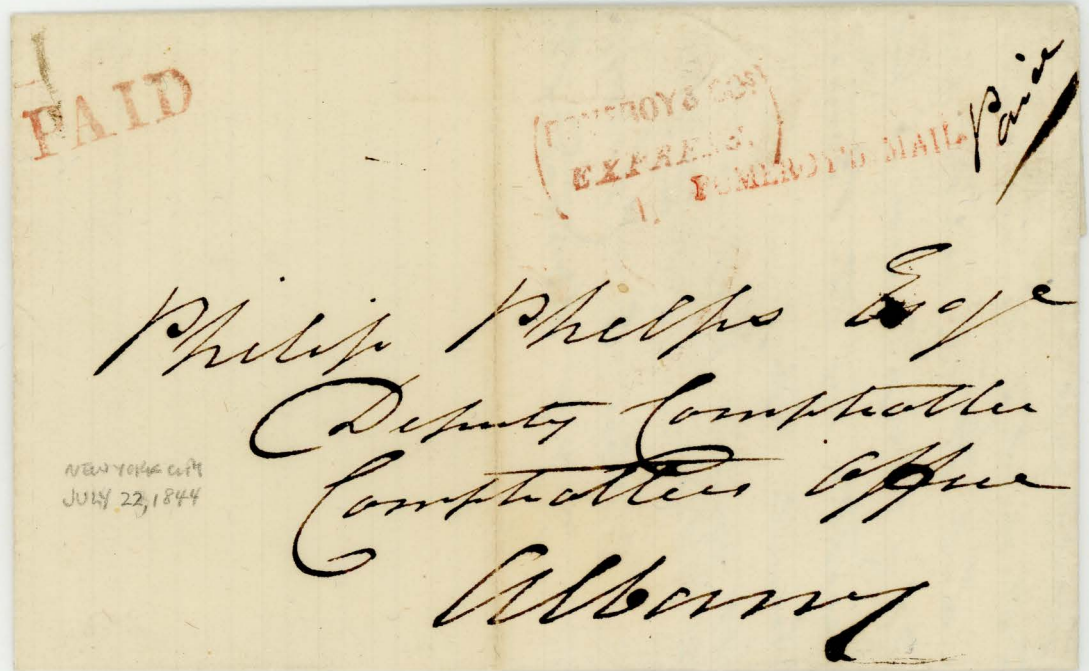 PAID
POMEROY & CO'S
EXPRESS.
POMEROY'S MAIL.
Paid
Philip Phelps Esqe
Deputy Comptroller
Comptrollers Office
Albany
NEW YORK CITY
JULY 22, 1844